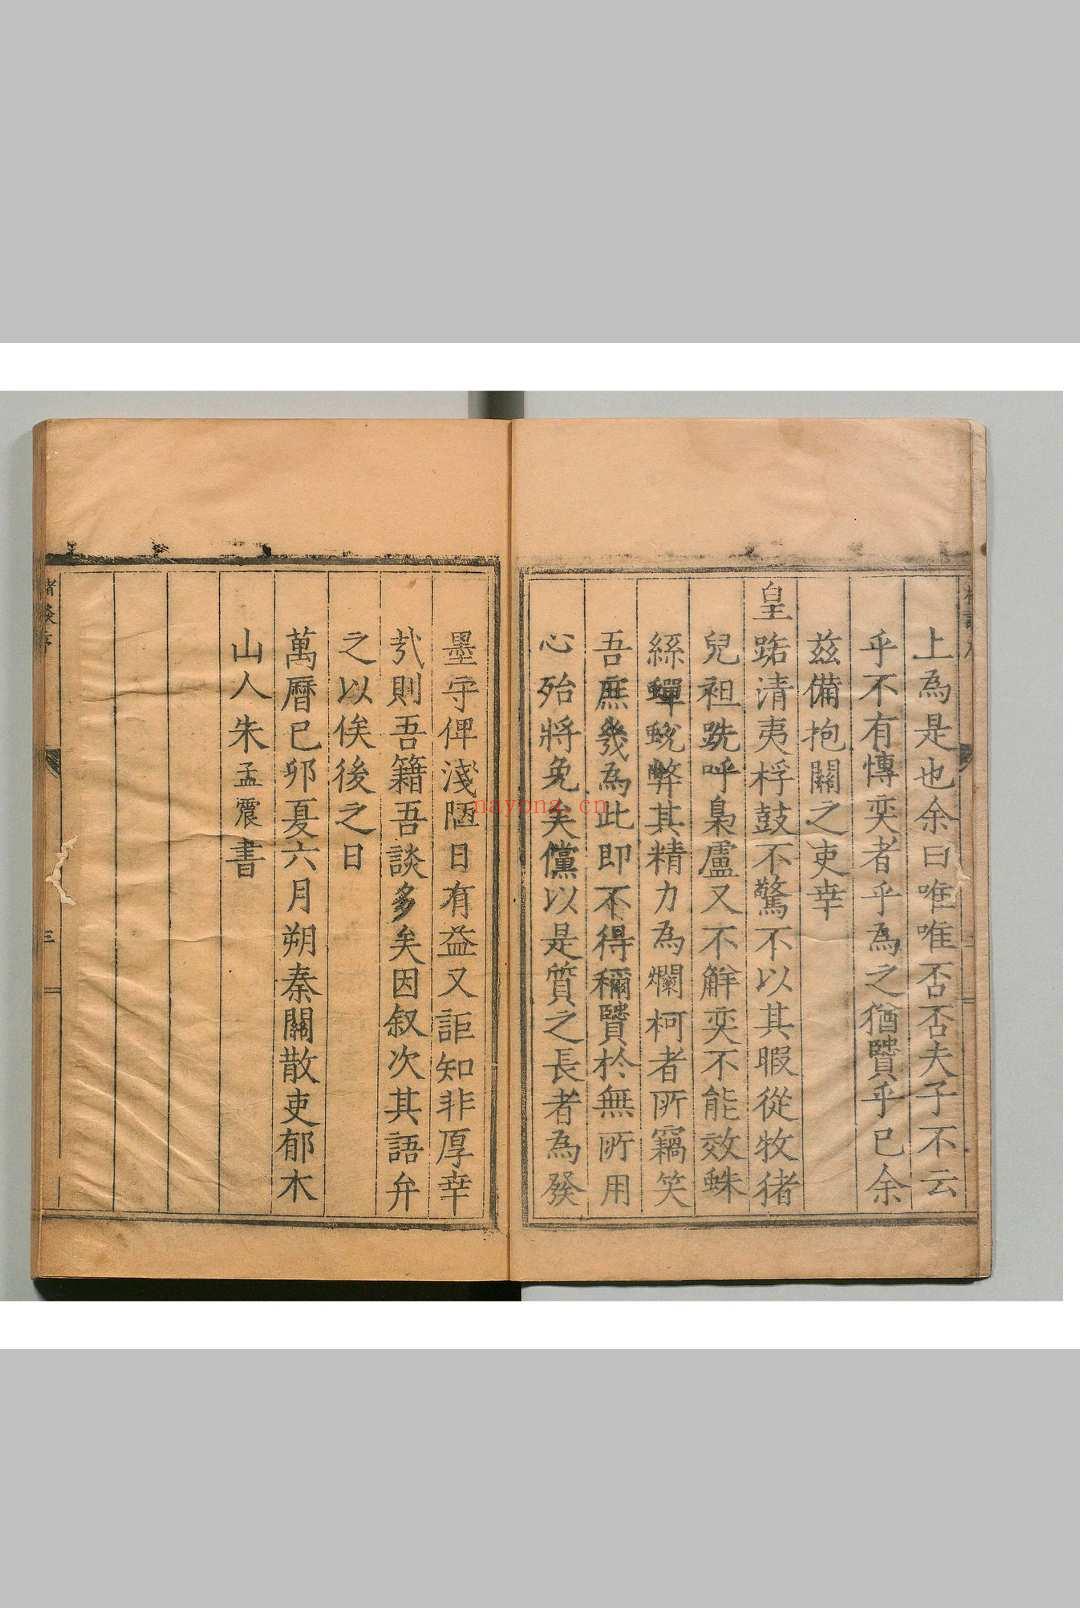 上為是也余曰唯唯否否夫子不云
乎不有慱奕者乎為之猶賢乎已余
茲備抱關之吏幸
皇路清夷桴鼓不驚不以其暇從牧猪
兒袒跣呼梟盧又不觧奕不能效蛛
絲蟬蛻弊其精力為爛柯者所竊笑
吾庶幾為此即不得稱賢於無所用
心殆將免矣儻以是質之長者為發
墨守俾淺陋日有益又詎知非厚幸
㢤則吾籍吾談多矣因叙次其語弁
之以俟後之日
萬曆己夘夏六月朔秦關散吏郁木
山人朱孟震書
三
nayona.cn